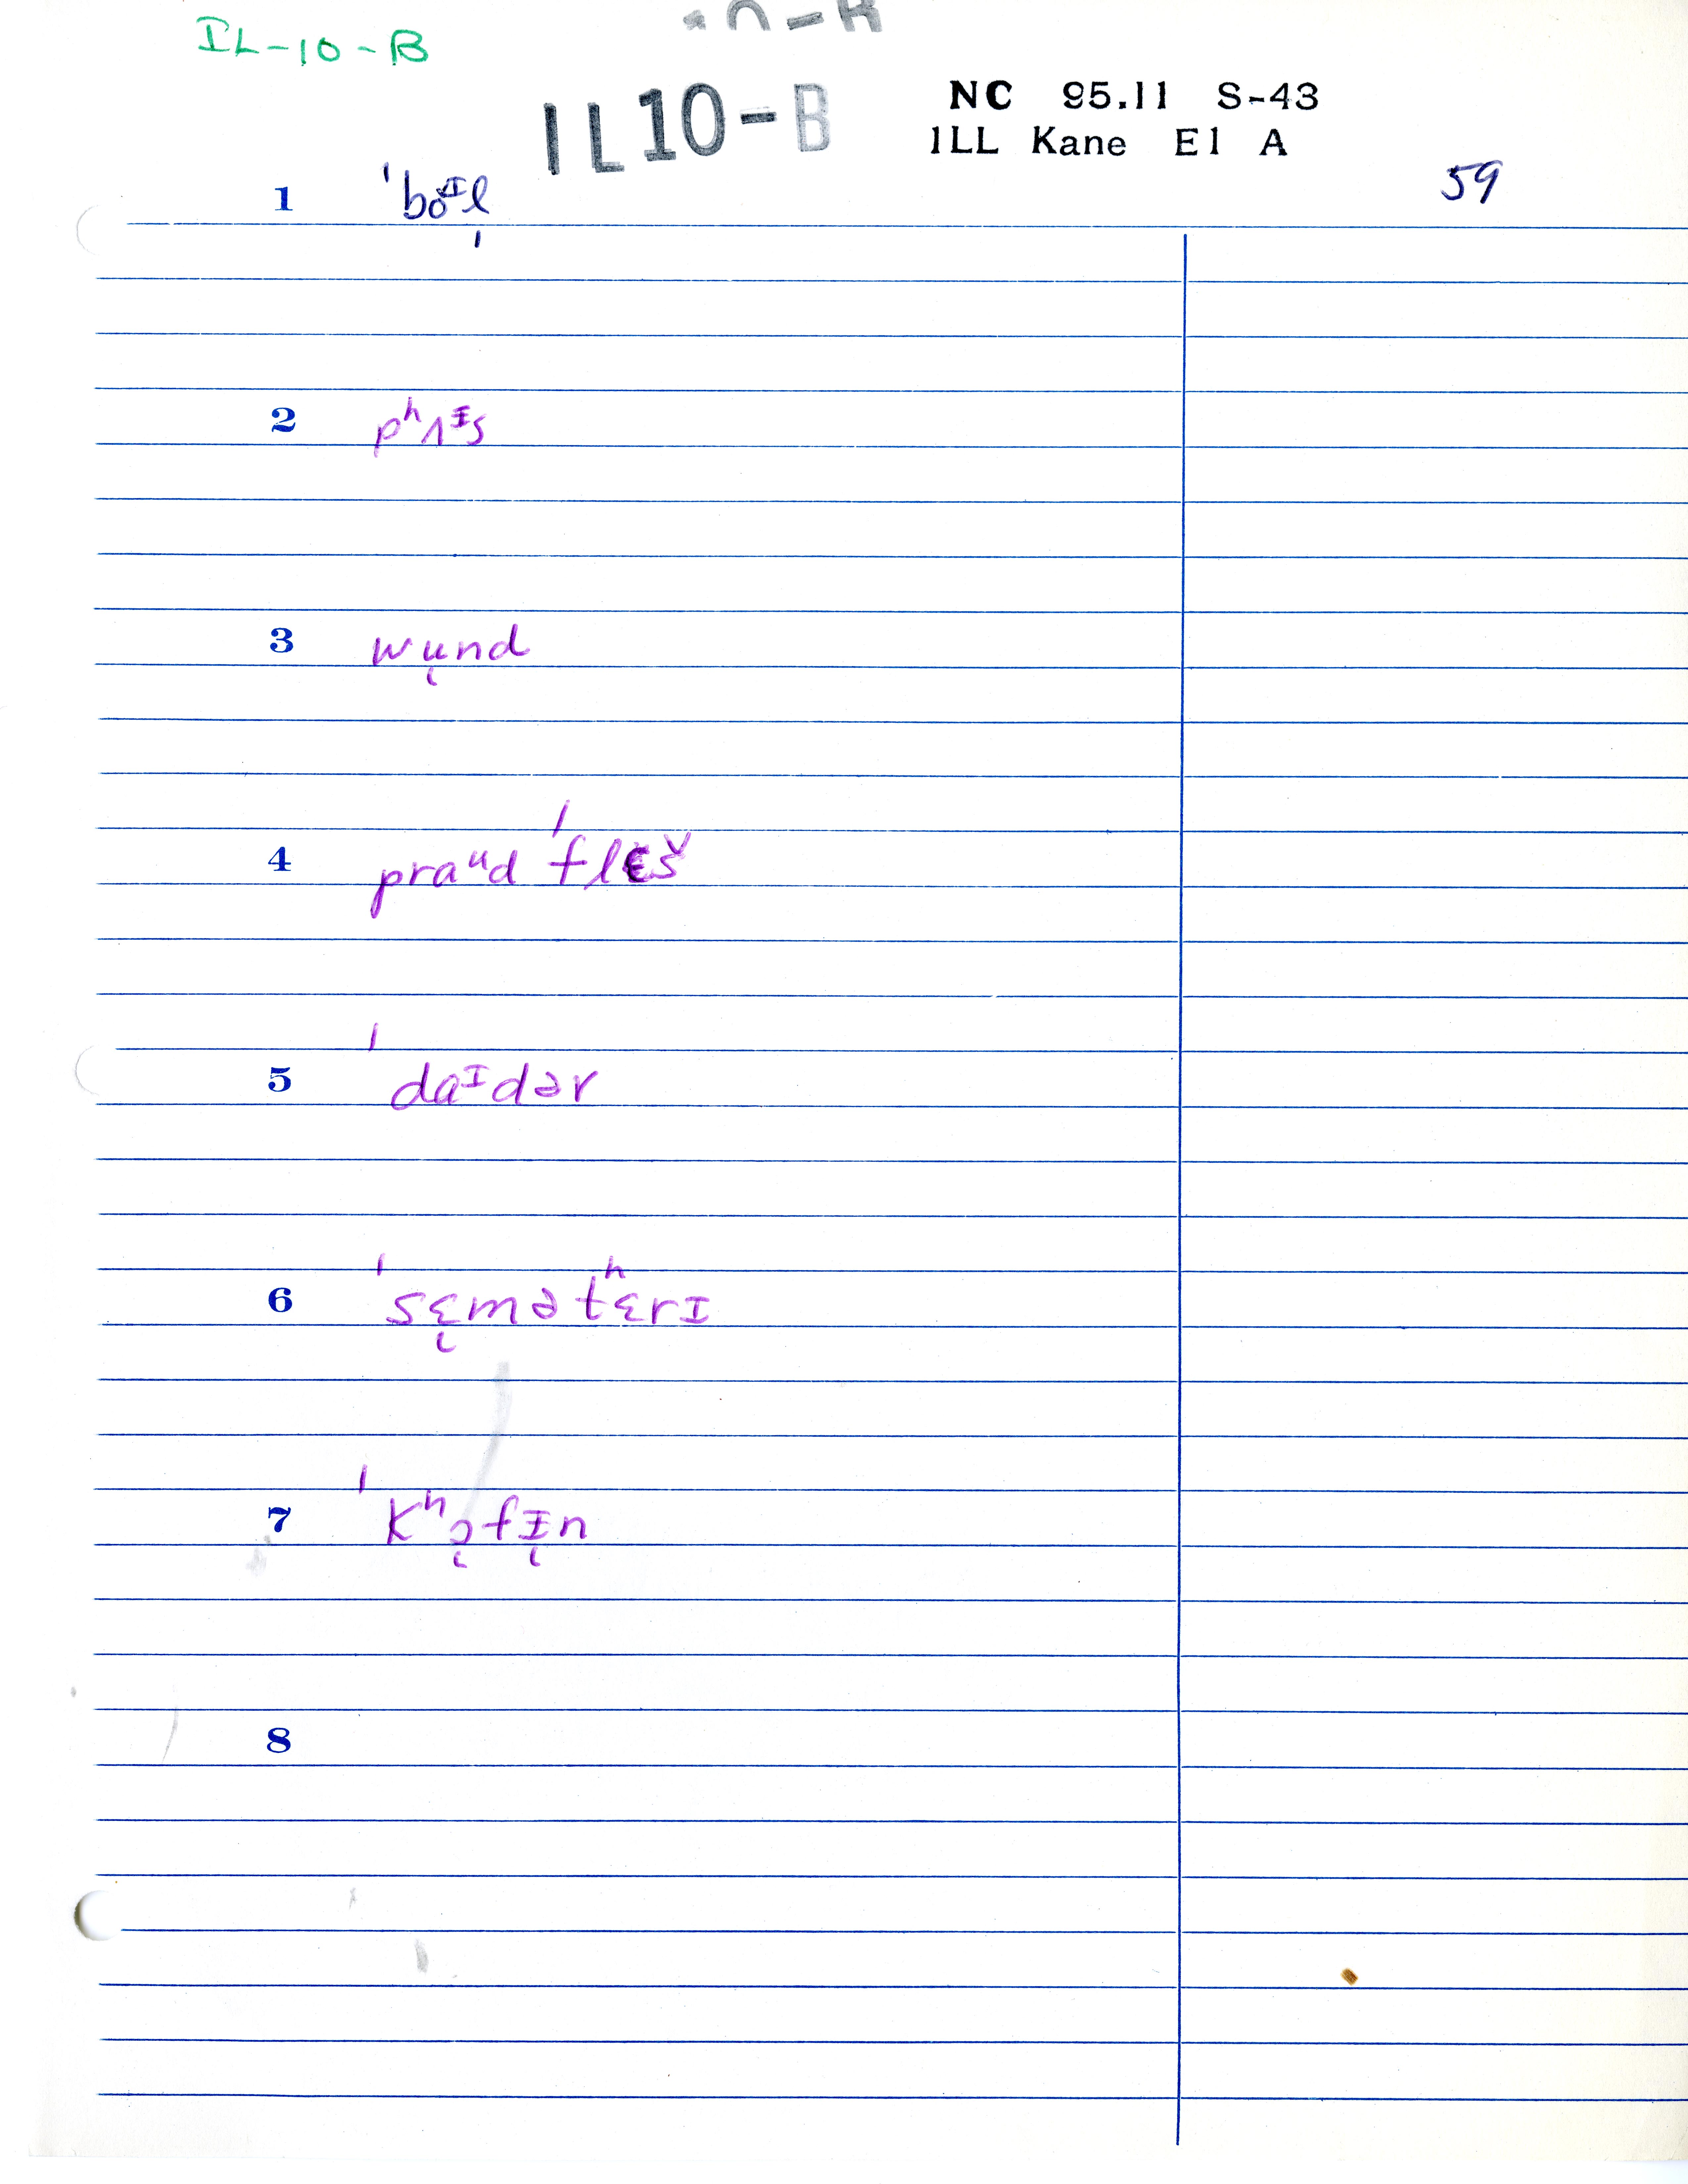 IL-10-B
IL10-B
NC 95.11 S-43
ILL Kane E1 A
59
1 ˈboᶦl̩
2 pʰʌᶦs
3 wu̜nd
4 praᵘd ˈflɛš
5 ˈdaᶦdər
6 ˈsɛ̜mətʰɛrɪ
7 ˈkʰɔ̜fɪ̜n
8